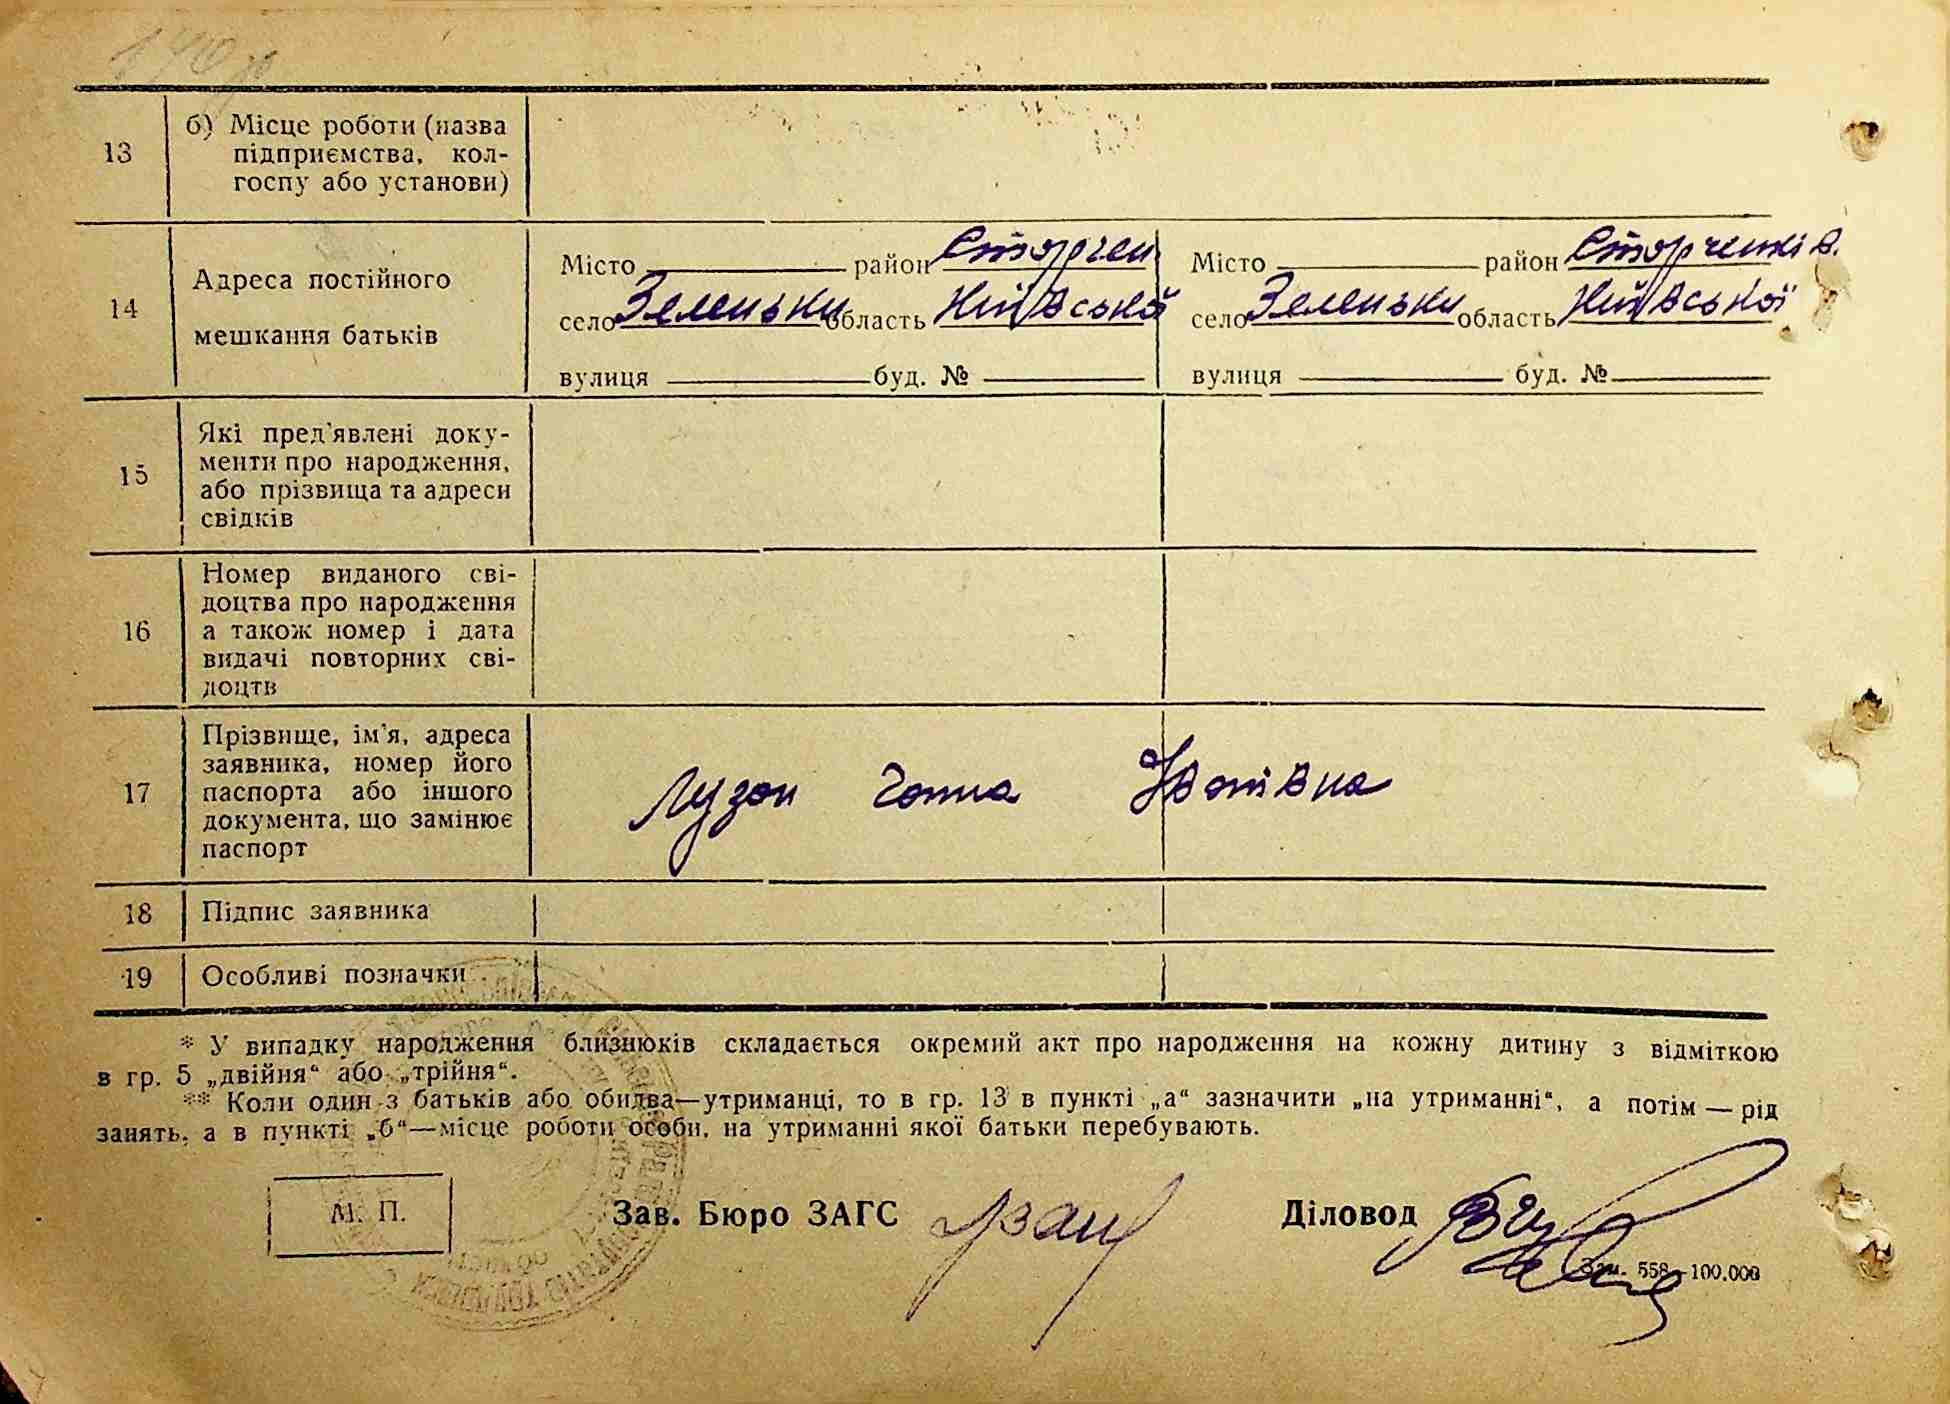 13
б) Місце роботи (назва
підприємства, кол-
госпу або установи)
14
Адреса постійного
мешкання батьків
Місто район
село Зеленьки область Київської
вулиця буд. №
Місто район
село Зеленьки область Київської
вулиця буд. №
15
Які пред'явлені доку-
менти про народження,
або прізвища та адреси
свідків
16
Номер виданого сві-
доцтва про народження
а також номер і дата
видачі повторних сві-
доцтв
17
Прізвище, ім'я, адреса
заявника, номер його
паспорта або іншого
документа, що замінює
паспорт
Лузан Ганна Іванівна
18
Підпис заявника
19
Особливі позначки
* У випадку народження близнюків складається окремий акт про народження на кожну дитину з відміткою
в гр. 5 „двійня“ або „трійня“.
** Коли один з батьків або обидва—утриманці, то в гр. 13 в пункті „а“ зазначити „на утриманні“, а потім — рід
занять, а в пункті „б“—місце роботи особи, на утриманні якої батьки перебувають.
М. П.
Зав. Бюро ЗАГС
Діловод
Зам. 558—100.000